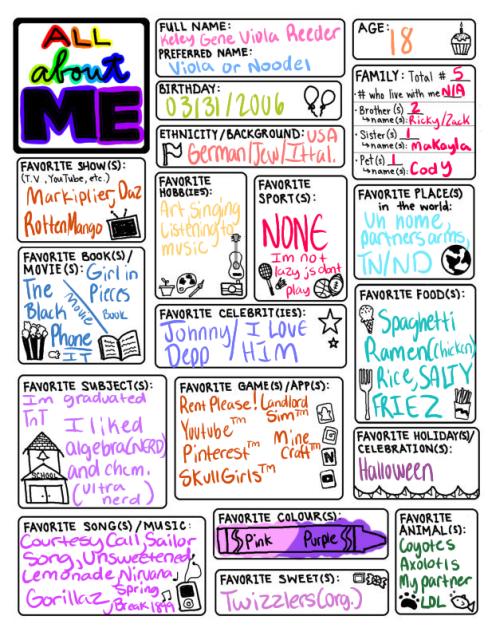 ALL
about
ME
FULL NAME:
Keley Gene Viola Reeder
PREFERRED NAME:
Viola or Noodel
AGE:
18
BIRTHDAY:
03/31/2006
ETHNICITY/BACKGROUND: USA
German/Jew/Ittal.
FAMILY: Total # 5
# who live with me N/A
Brother(s) 2
name(s): Ricky/Zack
Sister(s) 1
name(s): Makayla
Pet(s) 1
name(s): Cody
FAVORITE SHOW(S):
(T.V, YouTube, etc.)
Markiplier, Daz
RottenMango
FAVORITE HOBB(IES):
Art singing
Listening to
music
FAVORITE SPORT(S):
NONE
Im not
lazy js dont
play
FAVORITE PLACE(S)
in the world:
Uh nome,
partners arms,
TN/ND
FAVORITE BOOK(S)/
MOVIE(S):
Girl in
Pieces
Book
The
Black
Phone
IT
Movie
FAVORITE CELEBRIT(IES):
Johnny/ I LOVE
Depp HIM
FAVORITE FOOD(S):
Spaghetti
Ramen(chicken)
Rice, SALTY
FRIEZ
FAVORITE SUBJECT(S):
Im graduated
TnT
I liked
algebra(NERD)
and chem.
(ultra
nerd)
SCHOOL
FAVORITE GAME(S)/APP(S):
Rent Please! Landlord
Sim™
Youtube™
Mine
Craft™
Pinterest™
SkullGirls™
N
FAVORITE HOLIDAY(S)/
CELEBRATION(S):
Halloween
FAVORITE SONG(S)/MUSIC:
Courtesy Call, Sailor
Song, Unsweetened
Lemonade, Nirvana,
Gorillaz, Spring
Break 1899
FAVORITE COLOUR(S):
Pink Purple
FAVORITE SWEET(S):
Twizzlers(org.)
FAVORITE
ANIMAL(S):
Coyotes
Axolotls
My partner
LOL